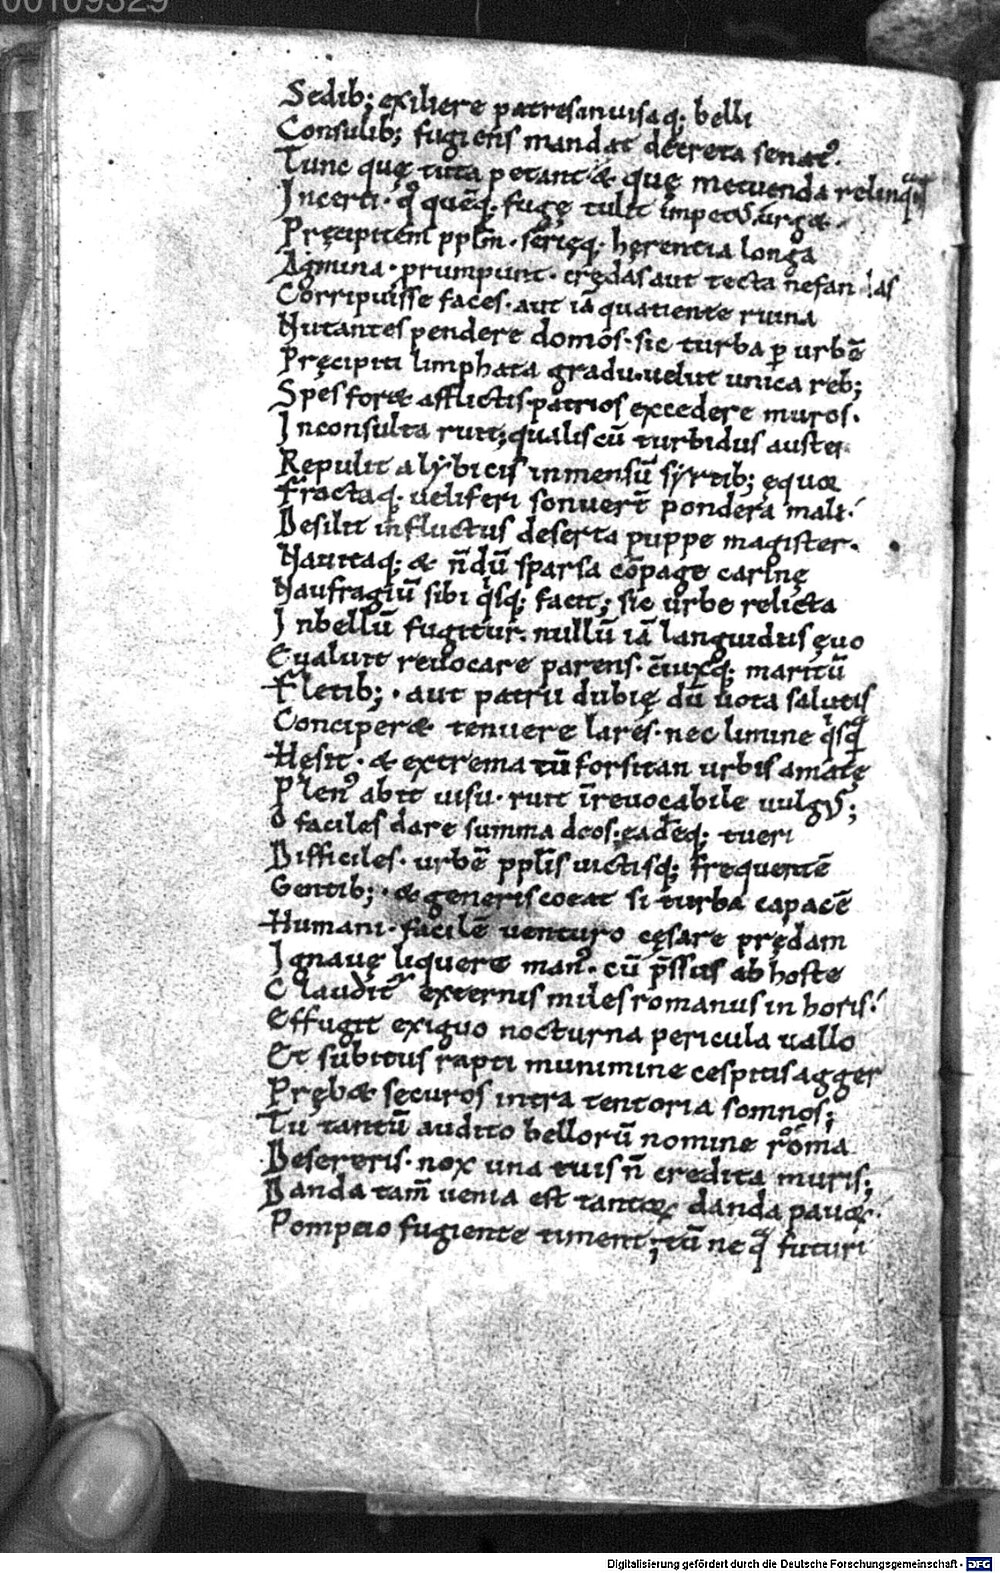 00109329
Sedib; exiliere patres inuisaq; belli
Consulib; fugiens mandat decreta senat᾽.
Tunc quę tuta petant & quę metuenda relinq̄
Incerti· q͛ quēq; fugę tulit impetꝰ urg&·
Pręcipitem ppl̄m· serięq; hęrentia longa
Agmina· prumpunt· credas aut tecta nefandas
Corripuisse faces· aut iā quatiente ruina
Nutantes pendere domos· sic turba ꝑ urbē
Pręcipiti limphata gradu· uelut unica reb;
Spes for& afflictis patrios excedere muros·
Inconsulta ruit; qualis cū turbidus auster
Repulit a lybicis inmensū syrtib; ęquor
Fractaq; ueliferi sonuer̄t pondera mali·
Desilit in fluctus deserta puppe magister·
Nauitaq; & n̄dū sparsa cōpage carinę
Naufragiū sibi q̇sq; facit; sic urbe relicta
In bellū fugitur· nullū iā languidus ęuo
Eualuit reuocare parens· c̄iuxq; maritū
Fletib;· aut patrii dubię dū uota salutis
Conciper& tenuere lares· nec limine q̇sq̄
Hęsit· & extrema tū forsitan urbis amatę
Plen᾽ abit uisu· ruit irreuocabile uulgꝰ;
O faciles dare summa deos· eadēq; tueri
Difficiles· urbē ppl̄is uictisq; frequentē
Gentib;· & generis coeat si turba capacē
Humani· facilē uenturo cęsare prędam
Ignauę liquere man᾽· cū p̄ssus ab hoste
Claudit᷑ externis miles romanus in horis·
Effugit exiguo nocturna pericula uallo
Et subitus rapti munimine cespitis agger
Pręb& securos intra tentoria somnos;
Tu tantū audito bellorū nomine roma
Desereris· nox una tuis n̄ credita muris;
Danda tam̄ uenia est tantorꝝ danda pauorꝝ·
Pompeio fugiente timent; tū ne q̄ futuri
Digitalisierung gefördert durch die Deutsche Forschungsgemeinschaft - DFG